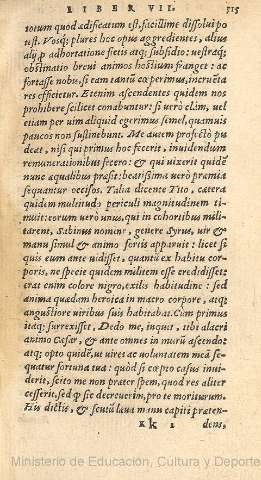 LIBER VII. 515
totum quod ædificatum est, facillime dissolui po
test. Vosq; plures hoc opus aggredientes, alius
alij p adhortatione fietis atq; subsidio: uestraq;
obstinatio breui animos hostium franget: ac
fortasse nobis, si eam tantū ex perimus, incruēta
res efficietur. Etenim ascendentes quidem nos
prohibere scilicet conabuntur: si uerò clàm, uel
etiam per uim aliquid egerimus semel, quamuis
paucos non sustinebunt. Me autem profectò pu
deat, nisi qui primus hoc fecerit, inuidendum
remunerationibus fecero: & qui uixerit quidē
nunc æqualibus præsit: beatissima uerò præmia
sequantur occisos. Talia dicente Tito, cætera
quidem multitudo periculi magnitudinem ti-
muit: eorum uerò unus, qui in cohortibus mili-
tarent, Sabinus nomine, genere Syrus, uir &
manu simul & animo fortis apparuit: licet si
quis eum ante uidisset, quantū ex habitu cor-
poris, ne specie quidem militem esse credidisset:
erat enim colore nigro, exilis habitudine: sed
anima quædam heroica in macro corpore, atq;
angustiore uiribus suis habitabat. Cùm primus
itaq; surrexisset, Dedo me, inquit, tibi alacri
animo Cæsar, & ante omnes in murū ascendo:
atq; opto quidē, ut uiret ac uoluntatem meā se-
quatur fortuna tua: quòd si cœpto casus inui-
derit, scito me non præter spem, quod res aliter
cesserit, sed p te decreuerim, pro te moriturum.
His dictis, & scutū læua manu capiti præten-
Kk 2 dens,
Ministerio de Educación, Cultura y Deporte